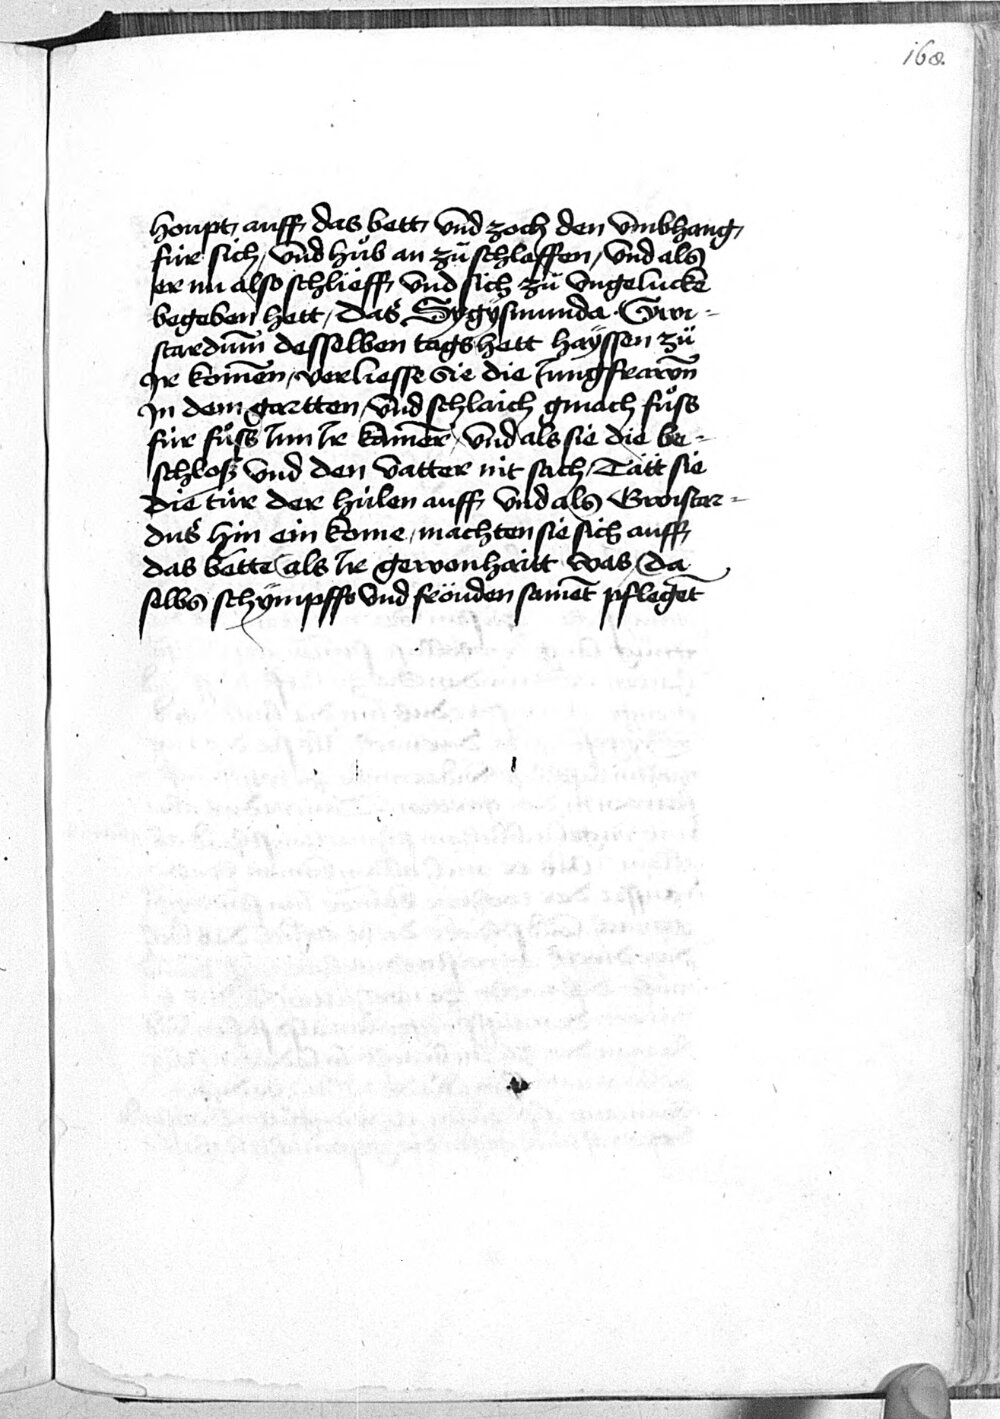 168.
houpt auff das bett vnd zoch den vmbhang
für sich / vnd hůb an zů schlaffen / vnd als
er nu also schlieff vnd sich zů vngelucke
begeben hett / das Sygÿsmunda Gwi-
scardum desselben tags hett haÿssen zů
Ir komen / verliesse sie die Jungfrawen
In dem gartten / vnd schlaich gmach fůss
für fůss Inn Ir kamer / vnd als sie die be-
schloß vnd den vatter nit sach / Tätt sie
die tür der hülen auff vnd als Gwiscar-
dus hin ein kome / machten sie sich auff
das bette als Ir gewonhaitt was / da
selbs schÿmpffs vnd fröuden samet pfleget